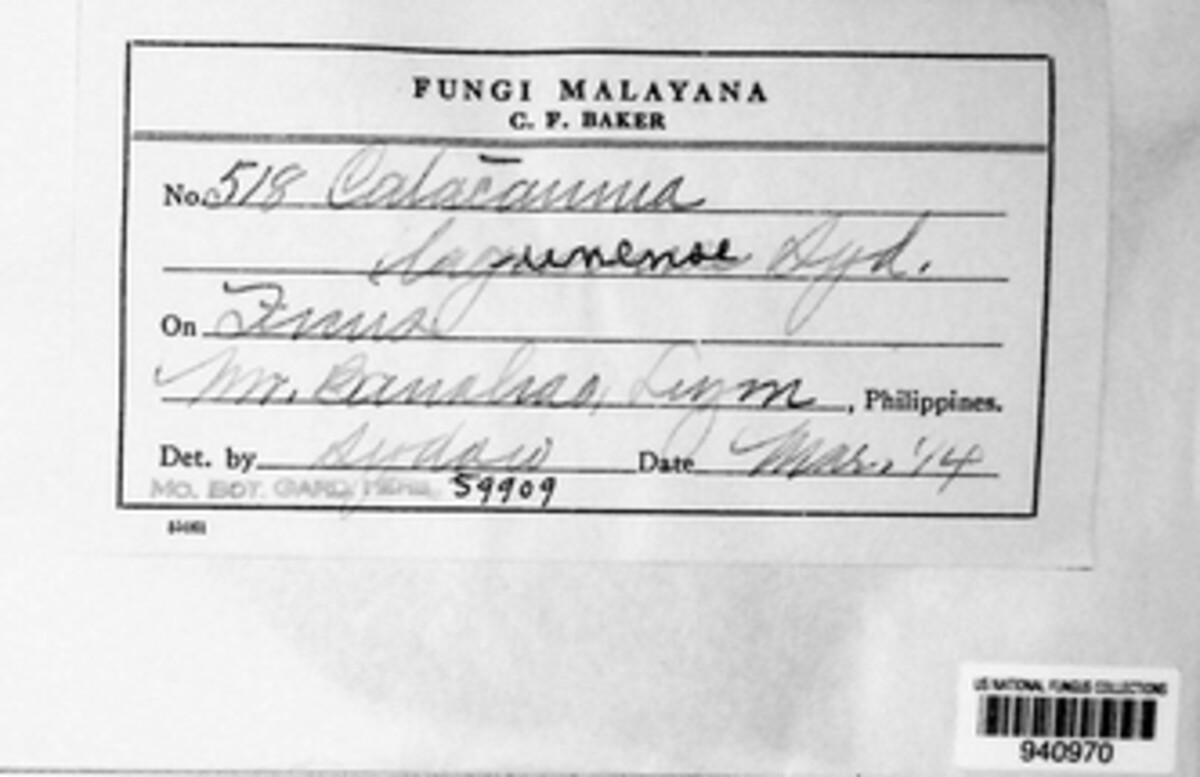 FUNGI MALAYANA
C. F. BAKER
No. 518 Catacauma
lagunense Syd.
On Ficus
Mt. Banahao,
, Philippines.
Det. by Sydow Date Mar., '14
MO. BOT. GARD. HERB. 59909
US NATIONAL FUNGUS COLLECTIONS
940970